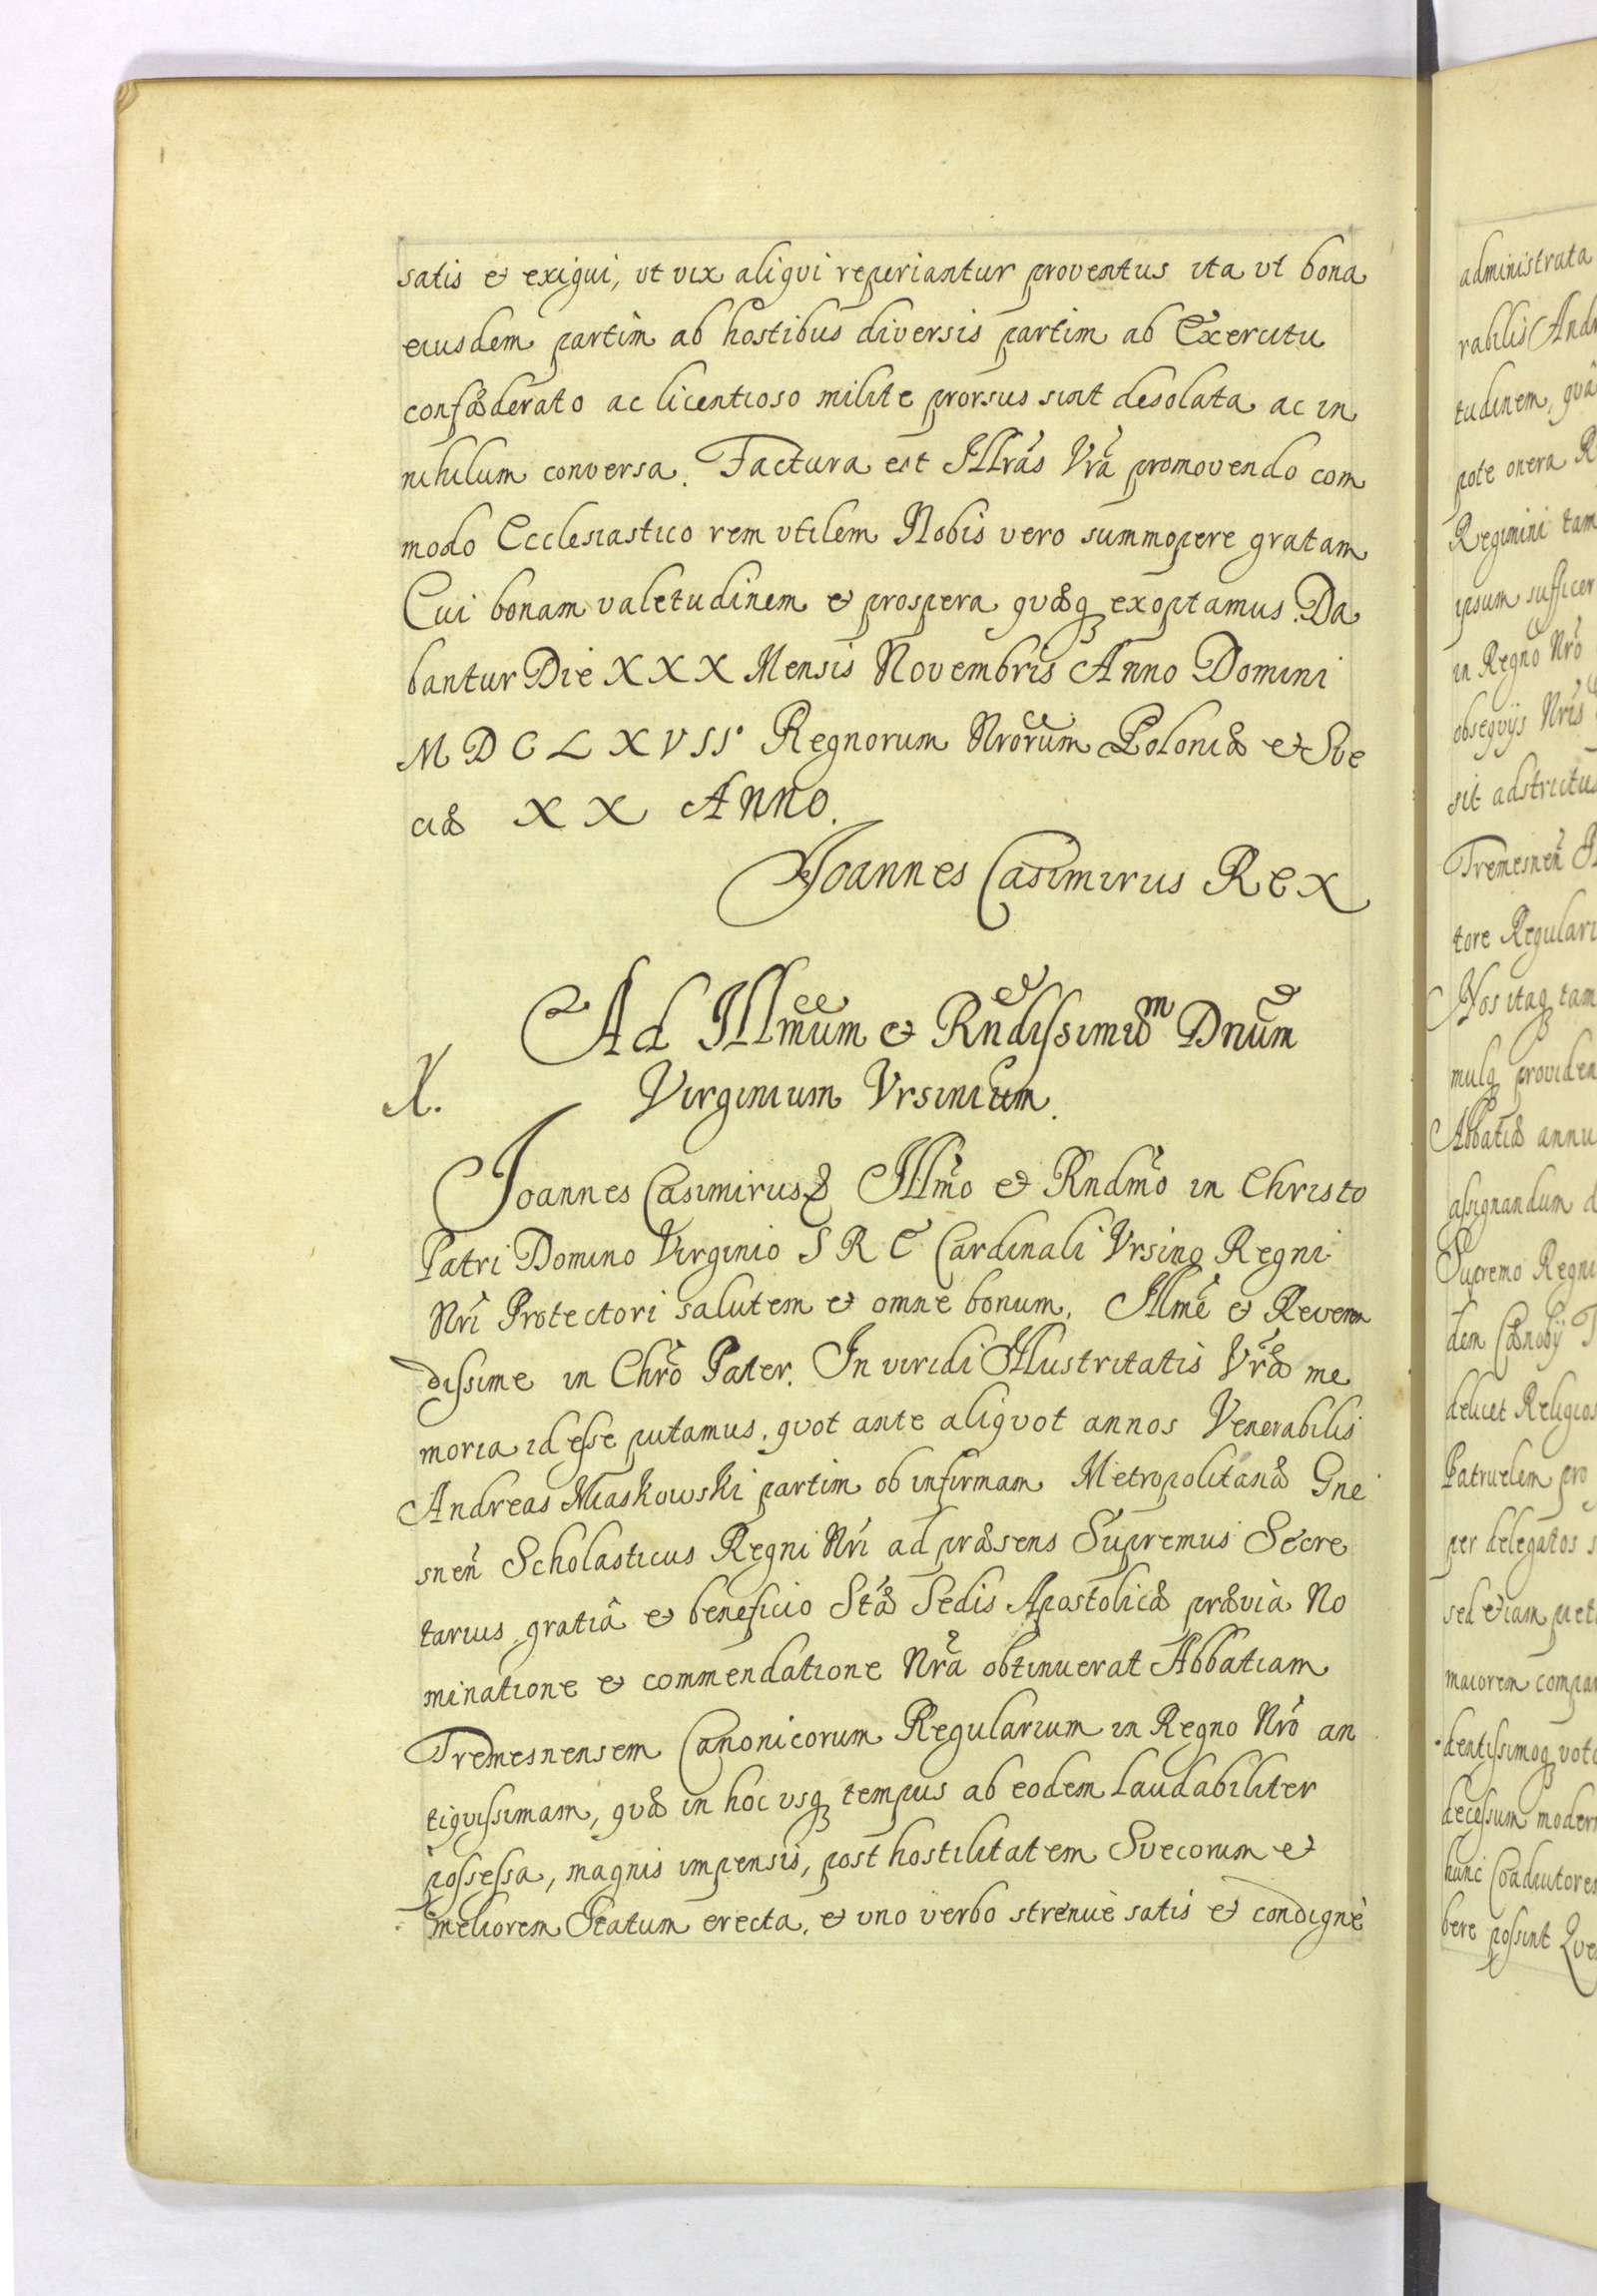 satis et exigui, ut vix aliqui reperiantur proventus ita ut bona
eiusdem partim ab hostibus diversis partim ab Exercitu
confæderato ac licentioso milite prorsus sint desolata ac in
nihilum conversa. Factura est Illrãs Vrã promovendo com
modo Ecclesiastico rem utilem Nobis vero summopere gratam
Cui bonam valetudinem et prospera quæq exoptamus. Da
bantur Die XXX Mensis Novembris Anno Domini
MDCLXVII° Regnorum Nrorum Poloniæ et Sve
ciæ XX Anno.
Joannes Casimirus Rex
Ad Illmum et Rndissimum Dnum
X. Virginium Ursinium.
Joannes Casimirus & Illmo et Rndmo in Christo
Patri Domino Virginio S R E Cardinali Ursino Regni
Nri Protectori salutem et omne bonum. Illme et Reveren
dissime in Chro Pater. In viridi Illustritatis Vræ me
moria id esse putamus, quot ante aliquot annos Venerabilis
Andreas Miaskowski partim ob infirmam Metropolitanæ Gne
snen Scholasticus Regni Nri ad præsens Supremus Secre
tarius gratiâ et beneficio Stæ Sedis Apostolicæ prævia No
minatione et commendatione Nrã obtinuerat Abbatiam
Tremesnensem Canonicorum Regularium in Regno Nro an
tiquissimam, quæ in hoc usq tempus ab eodem laudabiliter
possessa, magnis impensis, post hostilitatem Svecorum et
meliorem Statum erecta, et uno verbo strenuè satis et condignè
administrata
rabilis And
tudinem, quâ
pote onera R
Regimini tam
ipsum sufficer
in Regno Nro
obsequijs Nris
sit adstrictus
Tremesnen
tore Regulari
Nos itaq tam
mulq providen
Abbatiæ annu
assignandum d
Supremo Regni
dem Cænobij T
delicet Religios
Patruelem pro
per delegatos s
sed etiam pet
maiorem compar
dentissimoq voto
decessum modern
hunc Coadiutorem
bere possint Que